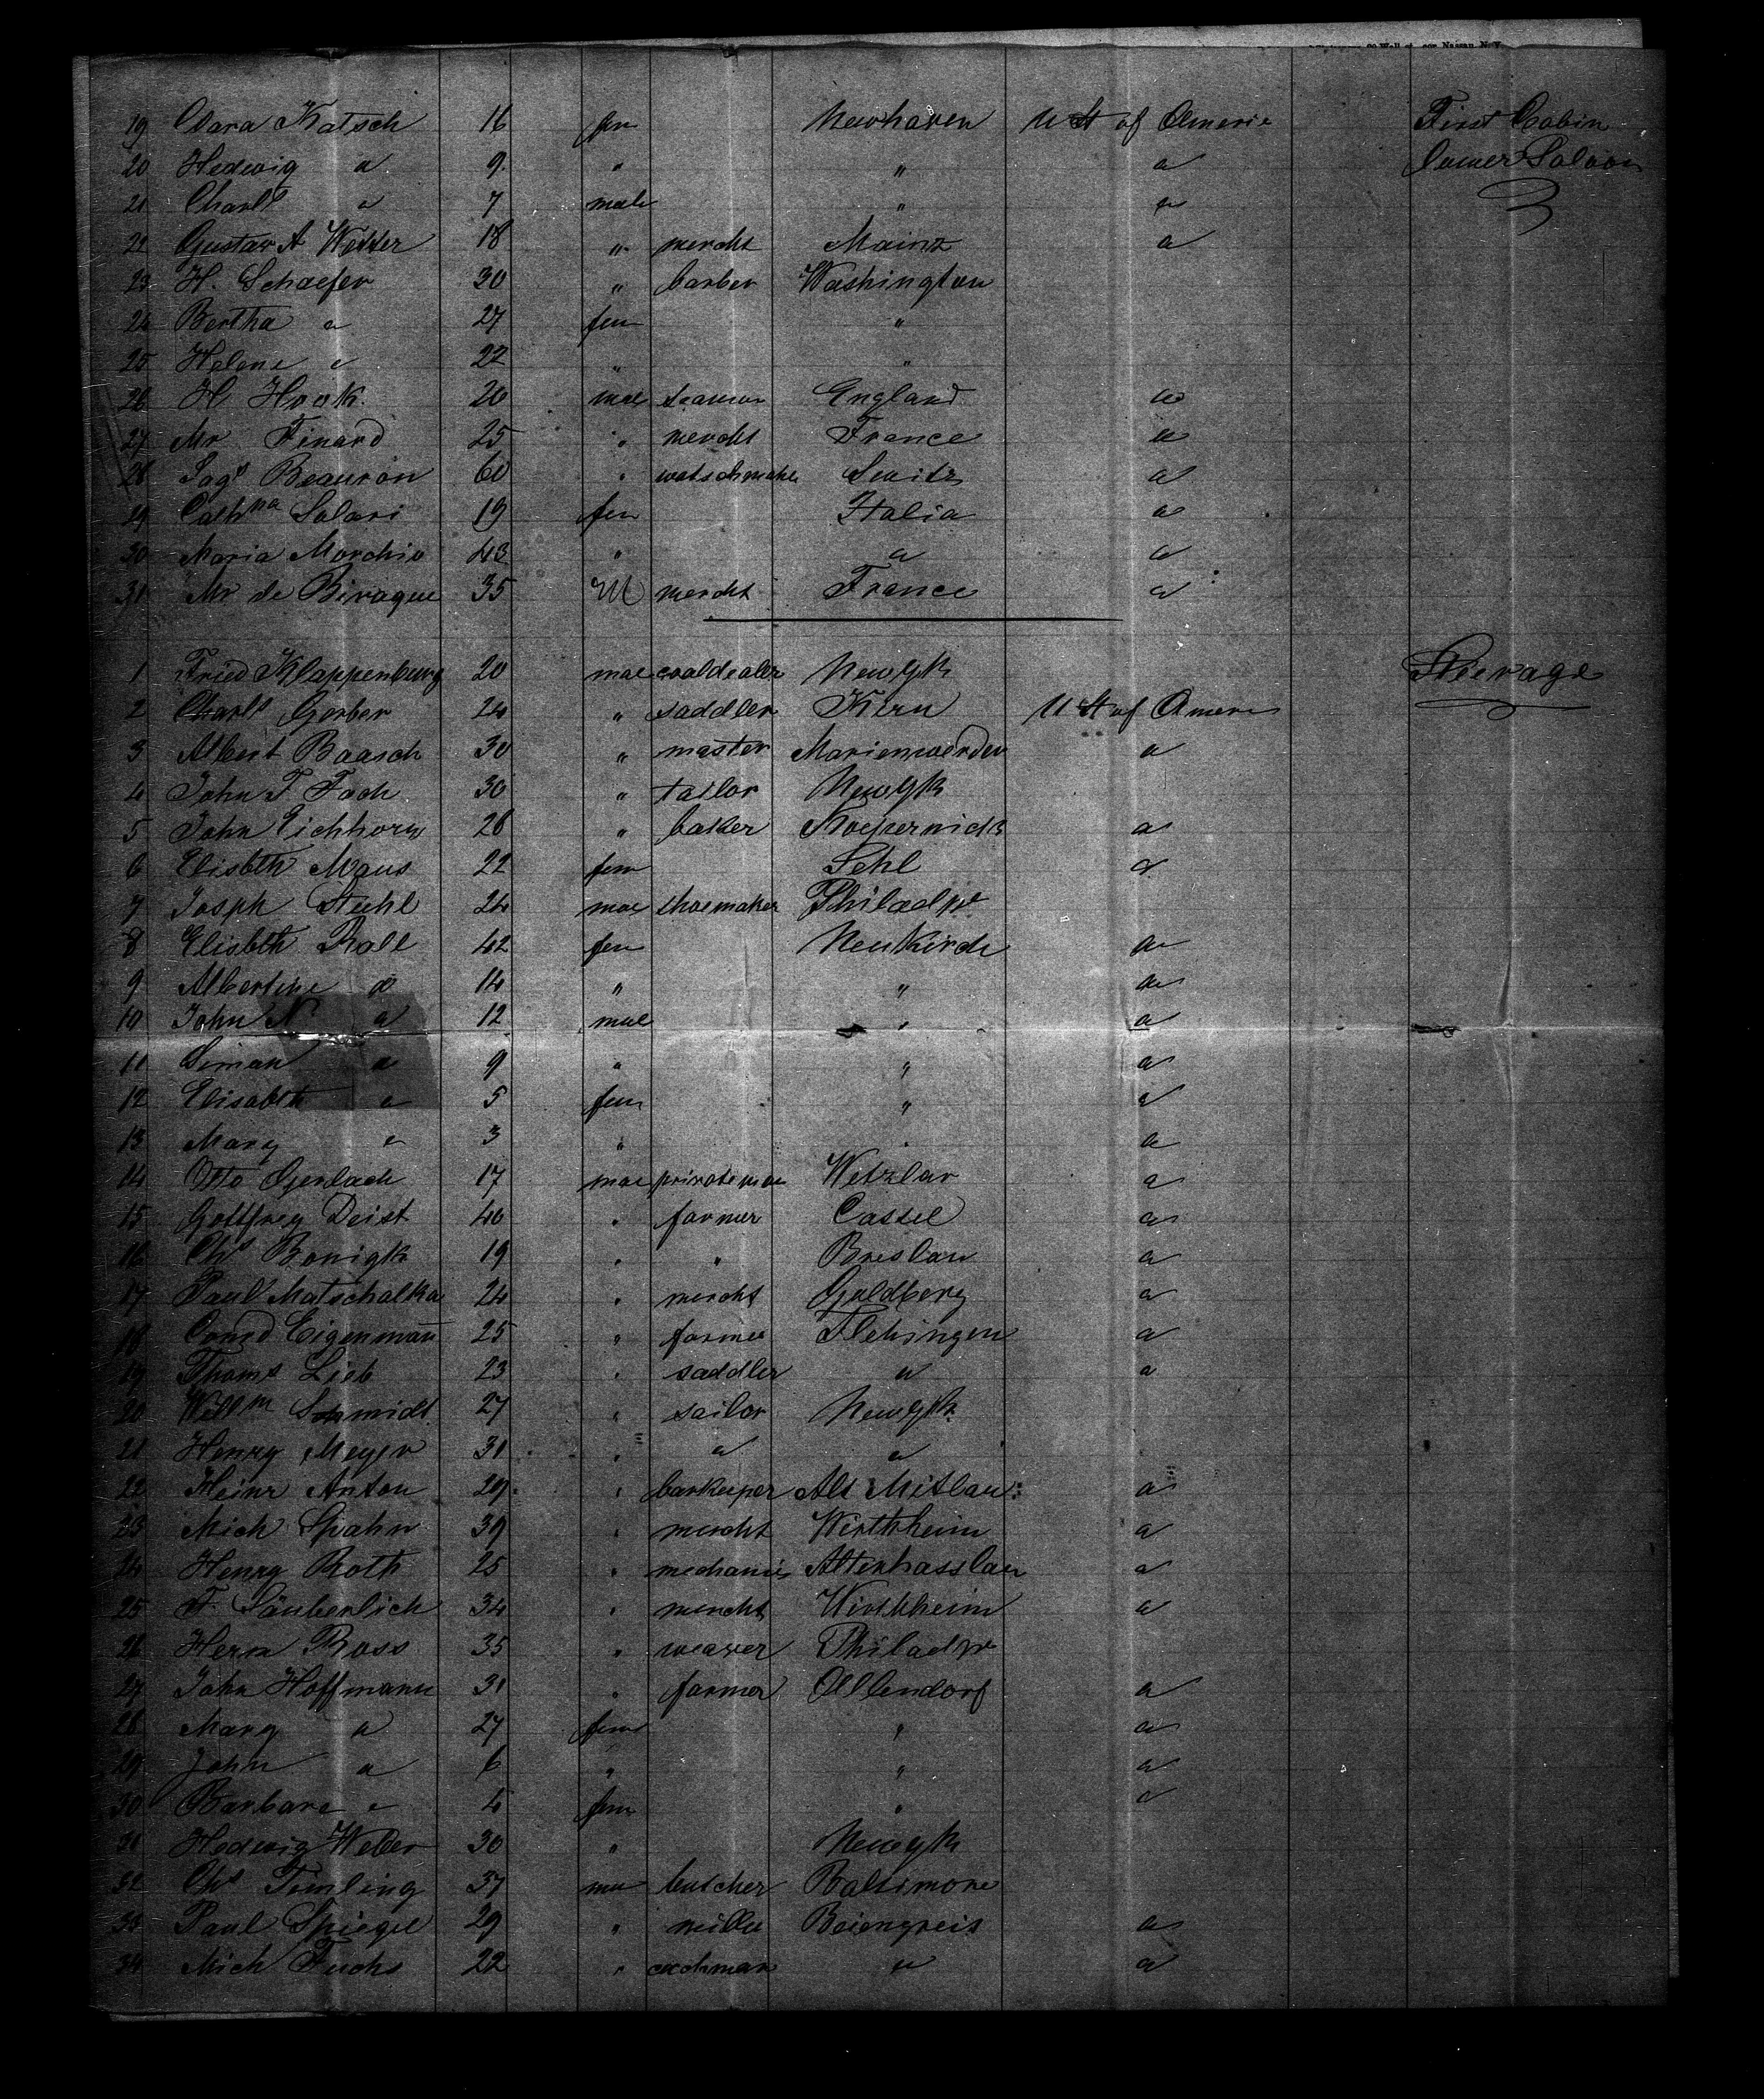 19 Clara Katsch 16 fem Newhaven U St of Americ First Cabin
20 Hedwig " 9 " " " Lower Saloon
21 Charls " 7 male " "
22 Gustav A Wetter 18 " mercht Mainz "
23 H. Schaefer 30 " barber Washington
24 Bertha " 27 fem "
25 Helene " 22 " "
26 H Hook 20 mal seaman England "
27 Mr Finard 25 " mercht France "
28 Beauron 60 " watschmaker Switz "
29 Cathna Solari 19 fem Italia "
30 Maria Morchio 43 " " "
31 Mr de Biraque 35 M mercht France "
1 Fried Klappenburg 20 mal coaldealer NewYk Steerage
2 Charls Gerber 24 " saddler Kirn U St of Amer
3 Albert Baasch 30 " master Marienwerder "
4 John F Foch 30 " tailor NewYk
5 John Eichhorn 28 " baker Koepernick "
6 Elisbth Maus 22 fem Sehl "
7 Josph Stuhl 24 mal shoemaker Philadlp
8 Elisbth Roll 42 fem Neukirch "
9 Albertine " 14 " " "
10 John N " 12 mal " "
11 Siman " 9 " " "
12 Elisabth " 5 fem " "
13 Mary " 3 " " "
14 Otto Gerlach 17 mal privateman Wetzlar "
15 Gottfrey Deist 40 " farmer Cassel "
16 Chs Bonigk 19 " " Breslau "
17 Paul Matschalka 24 " mercht Goldberg "
18 Conrd Eigenmann 25 " farmer Flehingen "
19 Thoms Lieb 23 " saddler " "
20 Willm Schmidt 27 " sailor NewYk
21 Henry Meyer 31 " " "
22 Heinr Anton 29 " barkeeper Alt Mitlau "
23 Mich Spahn 39 " mercht Wirthheim "
24 Henry Roth 25 " mechanic Altenhasslau "
25 F. Säuberlich 34 " mercht Wirthheim "
26 Herm Ross 35 " weaver Philadlp
27 John Hoffmann 31 " farmer Ollendorf "
28 Marg " 27 fem " "
29 John " 6 " " "
30 Barbara " 4 fem " "
31 Hedwig Weber 30 " NewYk
32 Chs Timling 37 mal butcher Baltimore
33 Paul Spiegel 29 " miller Beiengreis "
34 Mich Fuchs 22 " cochman " "